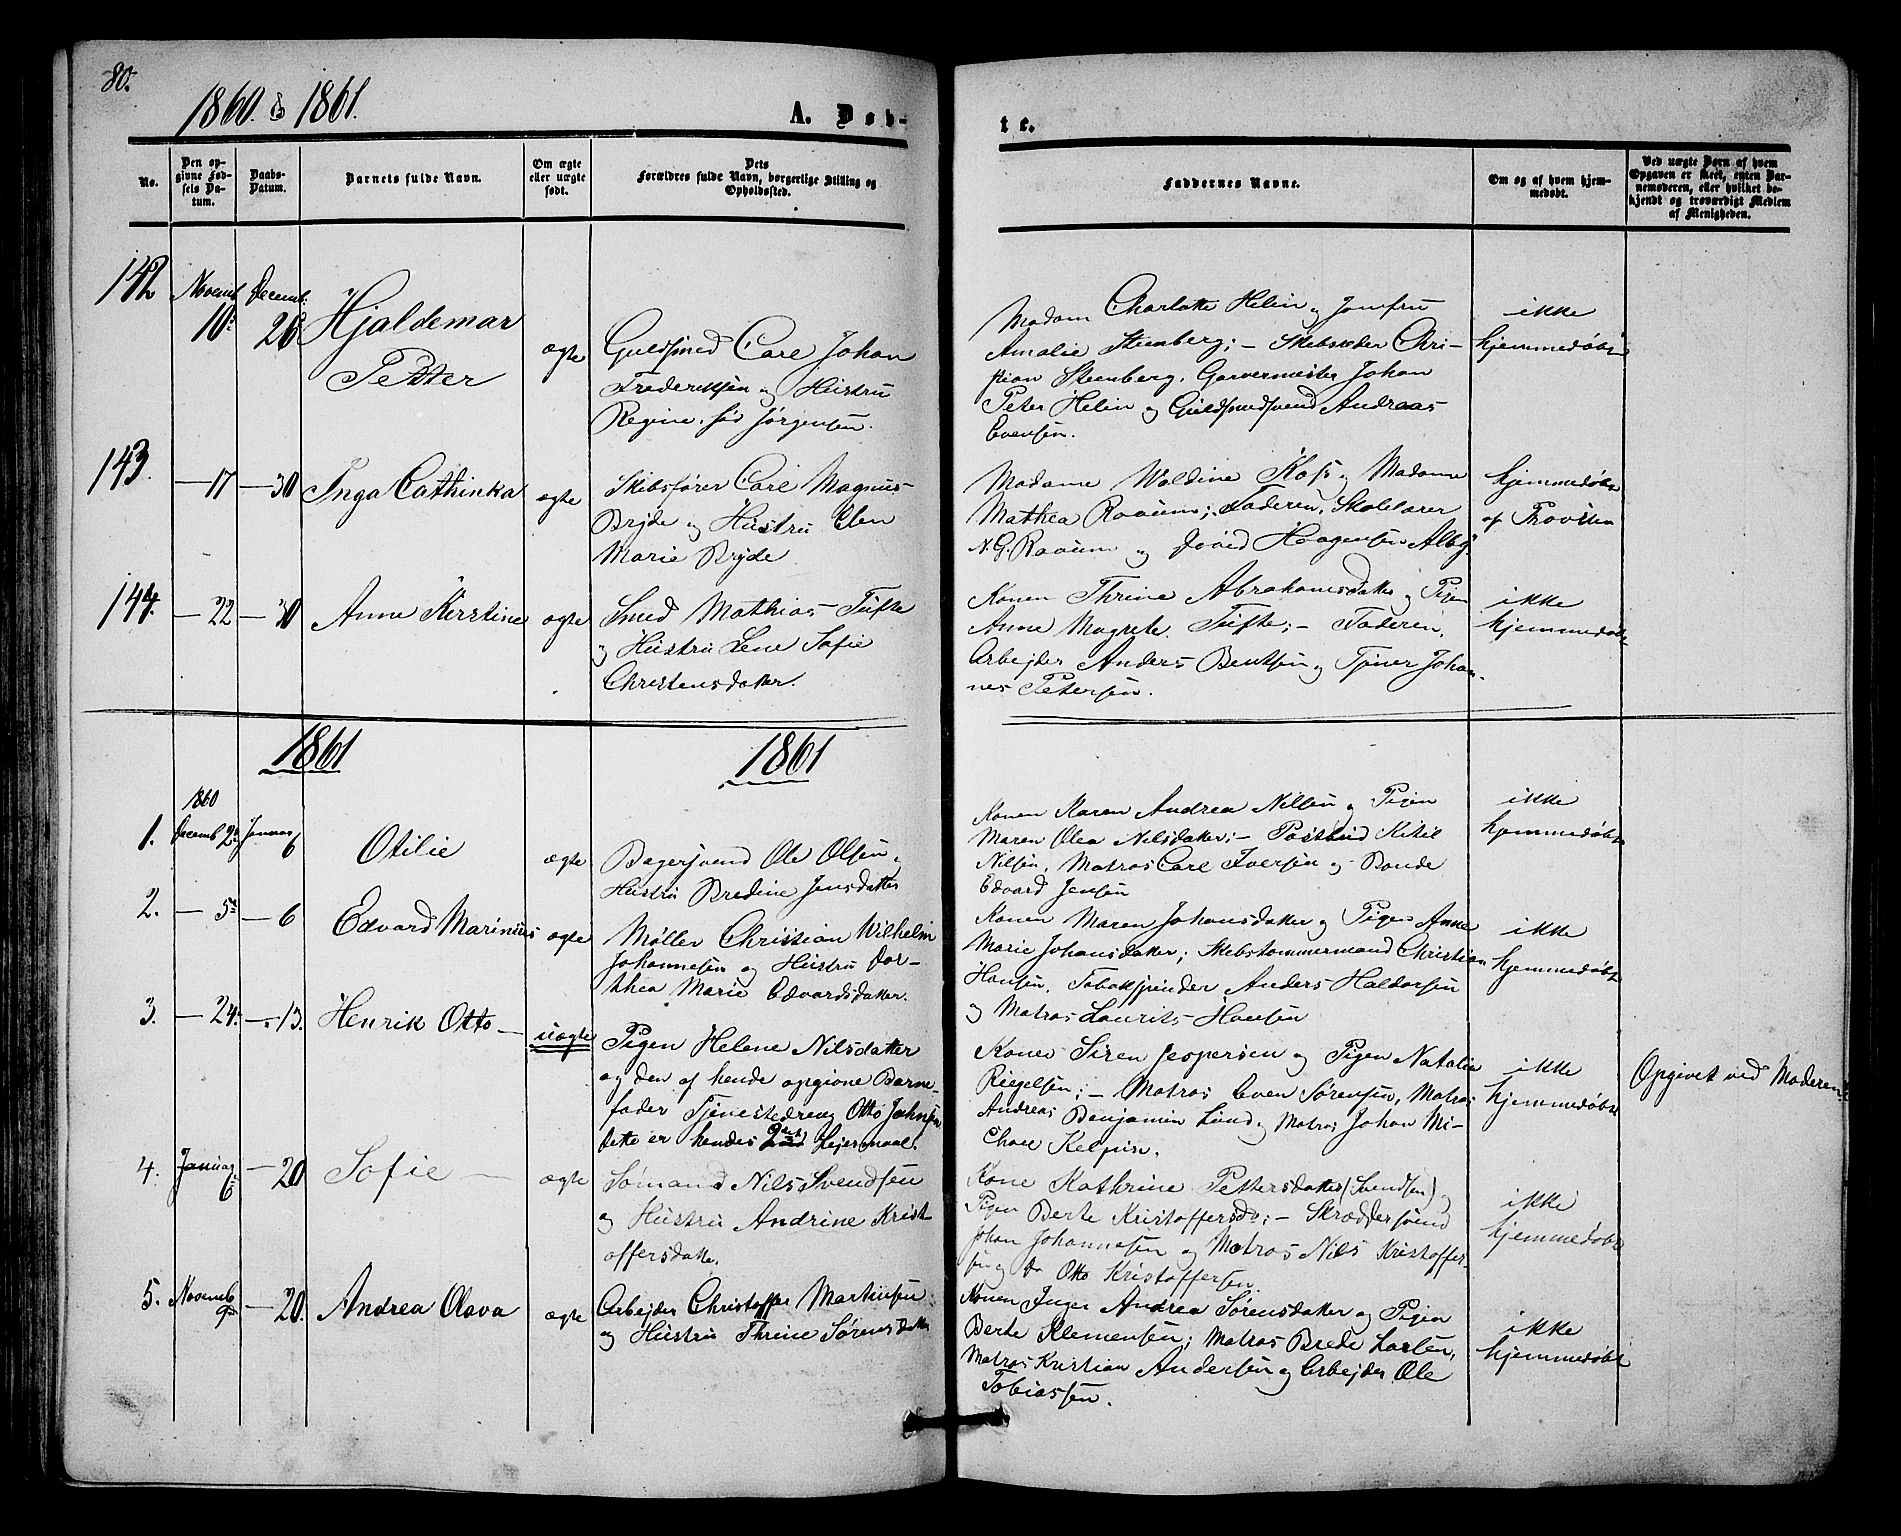 80.
1860. & 1861.
A. Døb-
te.
No.
Den op-
givne Fød-
sels Da-
tum.
Daabs-
Datum.
Barnets fulde Navn.
Om ægte
eller uægte
født.
Dets
Forældres fulde Navn, borgerlige Stilling og
Opholdssted.
Faddernes Navne.
Om og af hvem hjem-
medøbt.
Ved uægte Børn af hvem
Opgaven er skeet, enten Bar-
nemoderen, eller hvilket be-
kjendt og troværdigt Medlem
af Menigheden.
142
Novemb.
10.
Decemb.
26
Hjaldemar
Petter
ægte
Guldsmed Carl Johan
Frederiksen og Hustru
Regine, fød Jørgensen.
Madam Charlotte Helin og Jomfru
Amalie Steenberg; - Skibsreder Chri-
stian Steenberg, Garvermester Johan
Peter Helin og Guldsmedsvend Andreas
Evensen.
ikke
hjemmedøbt
143.
- 17
- 30
Inga Cathinka
ægte
Skibsfører Carl Magnus
Bryde og Hustru Elen
Marie Bryde
Madame Waldine Koss og Madame
Mathea Raaum; Faderen, Skolelærer
N. G. Raaum og Haagensen Alby
hjemmedøbt
af Provsten
144.
- 22
- 30
Anne Kirstine
ægte
Smed Mathias Tufte
og Hustru Lene Sofie
Christensdatter.
Konen Thrine Abrahamsdatter og Pigen
Anne Magrete Tufte; - Faderen,
Arbejder Anders Bentsen og Tjener Johan-
nes Petersen.
ikke
hjemmedøbt
1861
1861
1.
1860
Decemb. 2
Januar
6
Otilie
ægte
Bagersvend Ole Olsen,
Hustru Bredine Jensdatter
Konen Karen Andrea Nilsen og Pigen
Maren Olea Nilsdatter; - Postbud Kitil
Nilsen, Matros Carl Iversen og Bonde
Edvard Jensen
ikke
hjemmedøbt
2.
- 5
- 6
Edvard Marinius
ægte
Møller Christian Wilhelm
Johannesen og Hustru Dor-
thea Marie Edvardsdatter.
Konen Maren Johansdatter og Pigen Anne
Marie Johansdatter; Skibstømmermand Christian
Hansen, Tobakspinder Anders Haldorsen
og Matros Laurits Hansen
ikke
hjemmedøbt
3.
- 24.
- 13.
Henrik Otto -
uægte
Pigen Helene Nilsdatter
og den af hende opgivne Barne-
fader Tjenestedreng Otto Johnsen
dette er hendes 2det Lejermaal.
Konen Siren Jespersen og Pigen Natalia
Riegelsen; - Matros Even Sørensen, Matros
Andreas Benjamin Lund og Matros Johan Mi-
chael
ikke
hjemmedøbt
Opgivet ved Moderen
4.
Januar
6
- 20
Sofie -
ægte
Sømand Nils Svendsen
og Hustru Andrine Krist
offersdatter.
Kone Kathrine Pettersdatter (Svendsen) og
Pigen Berte Kristoffersdr; - Skræddersvend
Johan Johannesen og Matros Nils Kristoffer-
sen og do Otto Kristoffersen
ikke
hjemmedøbt
5.
Novemb
9
- 20.
Andrea Olava
ægte
Arbejder Christoffer Martinsen
og Hustru Thrine Sørensdatter
Konen Inger Andrea Sørensdatter og Pigen
Berte Klemensen; Matros Brede Larsen,
Matros Kristian Andersen og Arbejder Ole
Tobiassen.
ikke
hjemmedøbt